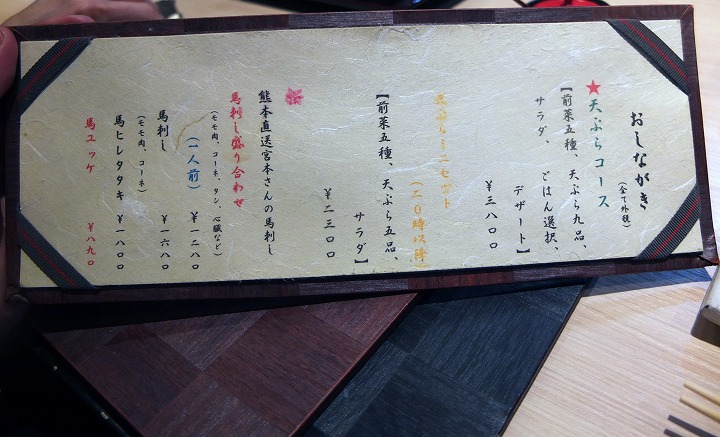 おしながき
(全て外税)
★天ぷらコース
【前菜五種、天ぷら九品、
サラダ、ごはん選択、
デザート】
¥三八〇〇
天ぷらミニセット
(二〇時以降)
【前菜五種、天ぷら五品、
サラダ】
¥二三〇〇
熊本直送宮本さんの馬刺し
馬刺し盛り合わせ
(モモ肉、コーネ、タン、心臓など)
(一人前) ¥一二八〇
馬刺し ¥一六八〇
(モモ肉、コーネ)
馬ヒレタタキ ¥一八〇〇
馬ユッケ ¥八九〇